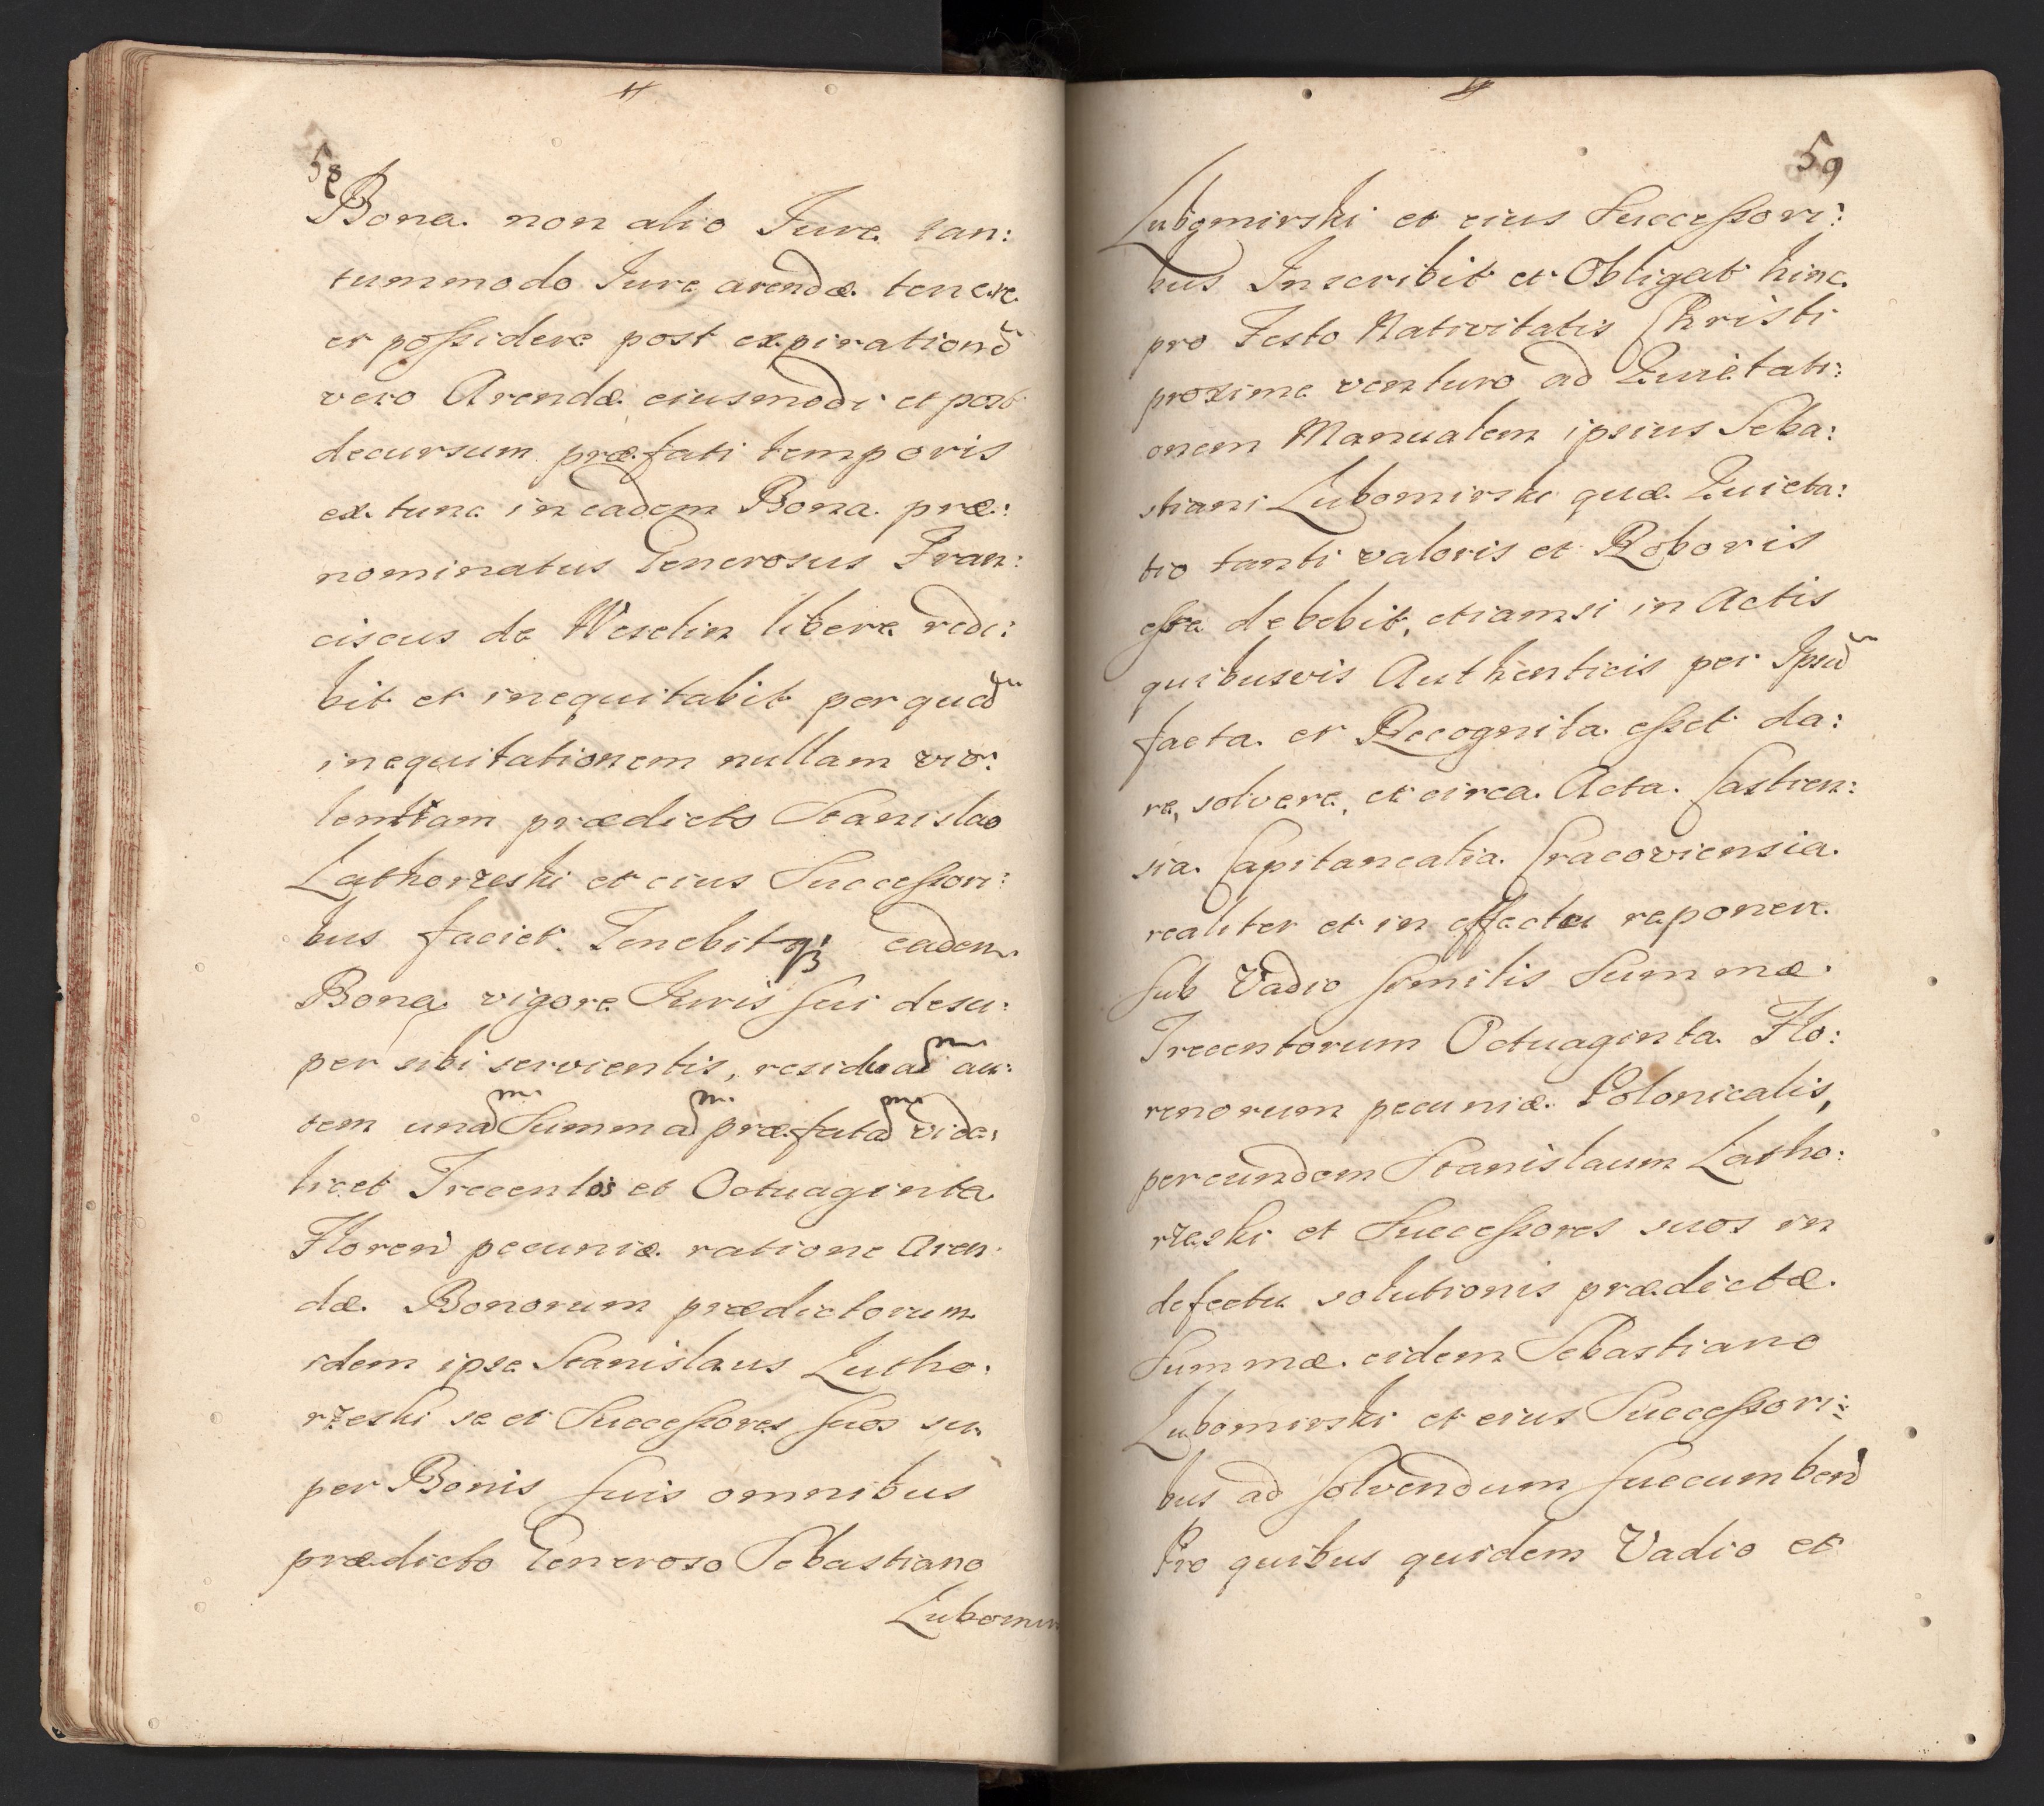 58
Bona non alio Jure tan:
tummodo Jure arendæ tenere
et possidere post expirationẽ
vero Arendæ eiusmodi et post
decursum præfati temporis
ex tunc in eadem Bona præ:
nominatus Generosus Fran:
ciscus de Weselin libere redi:
bit et inequitabit per quã
inequitationem nullam vio:
lentiam prædicto Stanislao
Lathorzeski et eius Successori:
bus faciet. Tenebitqȝ eadem
Bona vigore Juris sui desu:
per sibi servientis, residuam au:
tem unam Summam præfatam vide:
licet Trecentos et Octuaginta
Floren pecuniæ ratione Aren:
dæ Bonorum prædictorum
idem ipse Stanislaus Latho:
rzeski se et Successores suos su
per Bonis suis omnibus
prædicto Generoso Sebastiano
Lubomir
59
Lubomirski et eius Successori:
bus Inscribit et Obligat hinc
pro Festo Nativitatis Christi
proxime venturo ad Quietati:
onem Manualem ipsius Seba:
stiani Lubomirski quæ Quieta:
tio tanti valoris et Roboris
esse debebit, etiamsi in Actis
quibusvis Authenticis per Ipsũ
facta et Recognita esset da:
re, solvere, et circa Acta Castren:
sia Capitanealia Cracoviensia
realiter et in effectu reponere
sub Vadio similis Summæ
Trecentorum Octuaginta Flo:
renorum pecuniæ Polonicalis,
per eundem Stanislaum Latho:
rzeski et Successores suos in
defectu solutionis prædictæ
Summæ eidem Sebastiano
Lubomirski et eius Successori:
bus ad solvendum succumben
Pro quibus quidem Vadio et